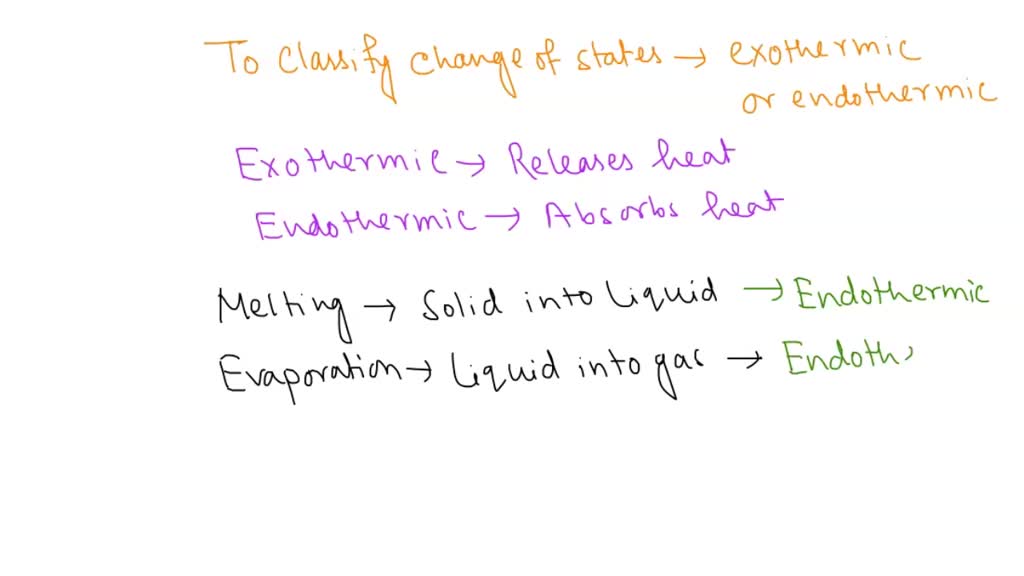 To classify change of states → exothermic
or endothermic
Exothermic → Releases heat
Endothermic → Absorbs heat
Melting → Solid into liquid → Endothermic
Evaporation → Liquid into gas → Endoth